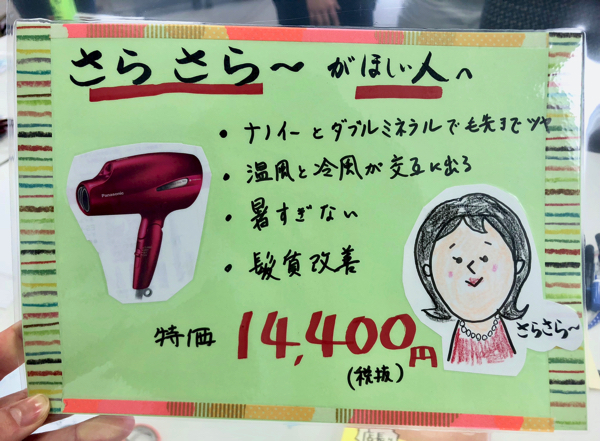 さらさら〜がほしい人へ
・ナノイーとダブルミネラルで毛先までツヤ
・温風と冷風が交互に出る
・暑すぎない
・髪質改善
Panasonic
特価 14,400円
(税抜)
さらさら〜